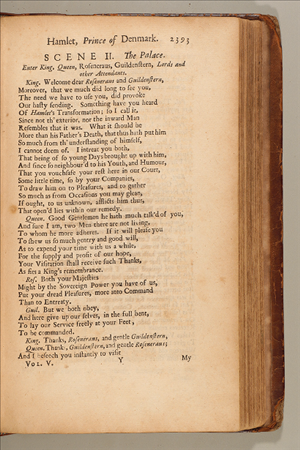 Hamlet, Prince of Denmark. 2393
SCENE II. The Palace.
Enter King, Queen, Rosincraus, Guildenstern, Lords and
other Attendants.
King. Welcome dear Rosincraus and Guildenstern,
Moreover, that we much did long to see you,
The need we have to use you, did provoke
Our hasty sending. Something have you heard
Of Hamlet's Transformation; so I call it,
Since not th' exterior, nor the inward Man
Resembles that it was. What it should be
More than his Father's Death, that thus hath put him
So much from th' understanding of himself,
I cannot deem of. I intreat you both,
That being of so young Days brought up with him,
And since so neighbour'd to his Youth, and Humour,
That you vouchsafe your rest here in our Court,
Some little time, so by your Companies,
To draw him on to Pleasures, and to gather
So much as from Occasions you may glean,
If ought, to us unknown, afflicts him thus,
That open'd lies within our remedy.
Queen. Good Gentlemen he hath much talk'd of you,
And sure I am, two Men there are not living,
To whom he more adheres. If it will please you
To shew us so much gentry and good will,
As to expend your time with us a while,
For the supply and profit of our hope,
Your Visitation shall receive such Thanks,
As fits a King's remembrance.
Ros. Both your Majesties
Might by the Sovereign Power you have of us,
Put your dread Pleasures, more into Command
Than to Entreaty.
Guil. But we both obey,
And here give up our selves, in the full bent,
To lay our Service freely at your Feet,
To be commanded.
King. Thanks, Rosincraus, and gentle Guildenstern,
Queen. Thanks, Guildenstern, and gentle Rosincraus;
And I beseech you instantly to visit
VOL. V. Y My